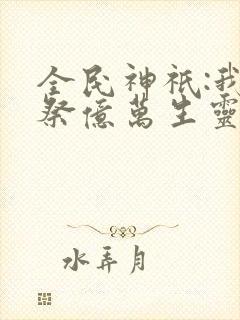 全民神祇:我
祭億萬生靈
水弄月